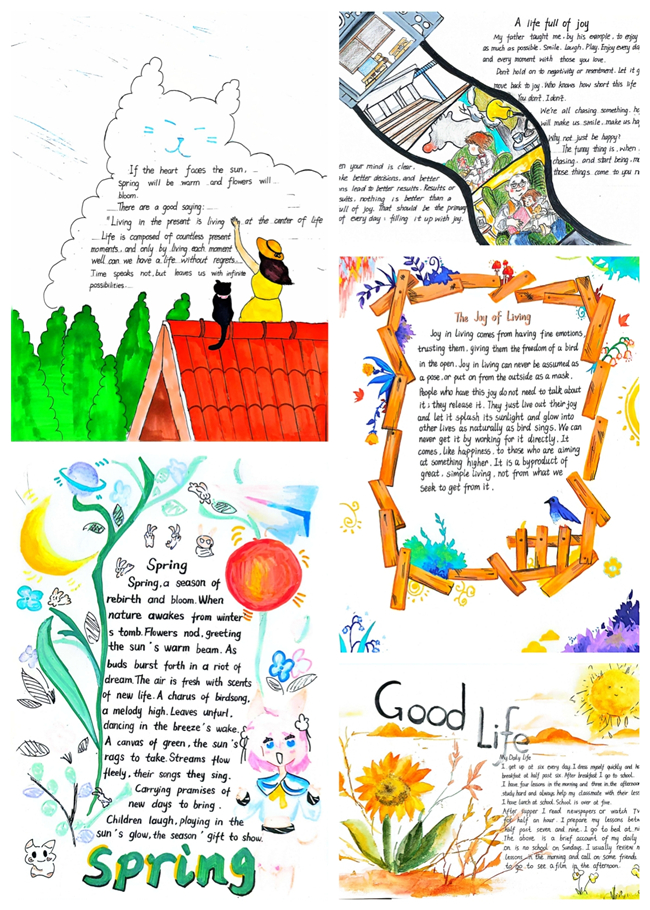 If the heart faces the sun,
Spring will be warm and flowers will
bloom.
There are a good saying:
"Living in the present is living at the center of life
Life is composed of countless present
moments, and only by living each moment
well can we have a life without regrets.
Time speaks not, but leaves us with infinite
possibilities.
A life full of joy
My father taught me, by his example, to enjoy
as much as possible. Smile. Laugh. Play. Enjoy every da
and every moment with those you love.
Don't hold on to negativity or resentment. Let it g
move back to joy. Who knows how short this life
You don't. I don't.
We're all chasing something, ho
will make us smile, make us ha
Why not just be happy?
The funny thing is, when
chasing, and start being, m
those things come to you n
en your mind is clear,
make better decisions, and better
ns lead to better results. Results or
sults, nothing is better than a
ull of joy. That should be the primary
of every day: filling it up with joy.
The Joy of Living
Joy in living comes from having fine emotions,
trusting them, giving them the freedom of a bird
in the open. Joy in living can never be assumed as
a pose, or put on from the outside as a mask.
People who have this joy do not need to talk about
it; they release it. They just live out their joy
and let it splash its sunlight and glow into
other lives as naturally as bird sings. We can
never get it by working for it directly. It
comes, like happiness, to those who are aiming
at something higher. It is a byproduct of
great, simple living, not from what we
seek to get from it.
Spring
Spring, a season of
rebirth and bloom. When
nature awakes from winter
s tomb. Flowers nod, greeting
the sun's warm beam. As
buds burst forth in a riot of
dream. The air is fresh with scents
of new life. A charus of birdsong,
a melody high. Leaves unfurl,
dancing in the breeze's wake.
A canvas of green, the sun's
rags to take. Streams flow
fleely, their songs they sing.
Carrying pramises of
new days to bring.
Children laugh, playing in the
sun's glow, the season' gift to show.
Spring
Good
Life
My Daily Life
I get up at six every day. I dress myself quickly and ha
breakfast at half past six. After breakfast I go to school.
I have four lessons in the morning and three in the afternoon
study hard and always help my classmate with their less
I have lunch at school. School is over at five.
After supper I read newspapers or watch TV
for half an hour. I prepare my lessons betw
half past seven and nine. I go to bed at ni
The above is a brief account of my daily
on is no school on Sundays. I usually review m
lessons in the morning and call on some friends
to go to see a film in the afternoon.